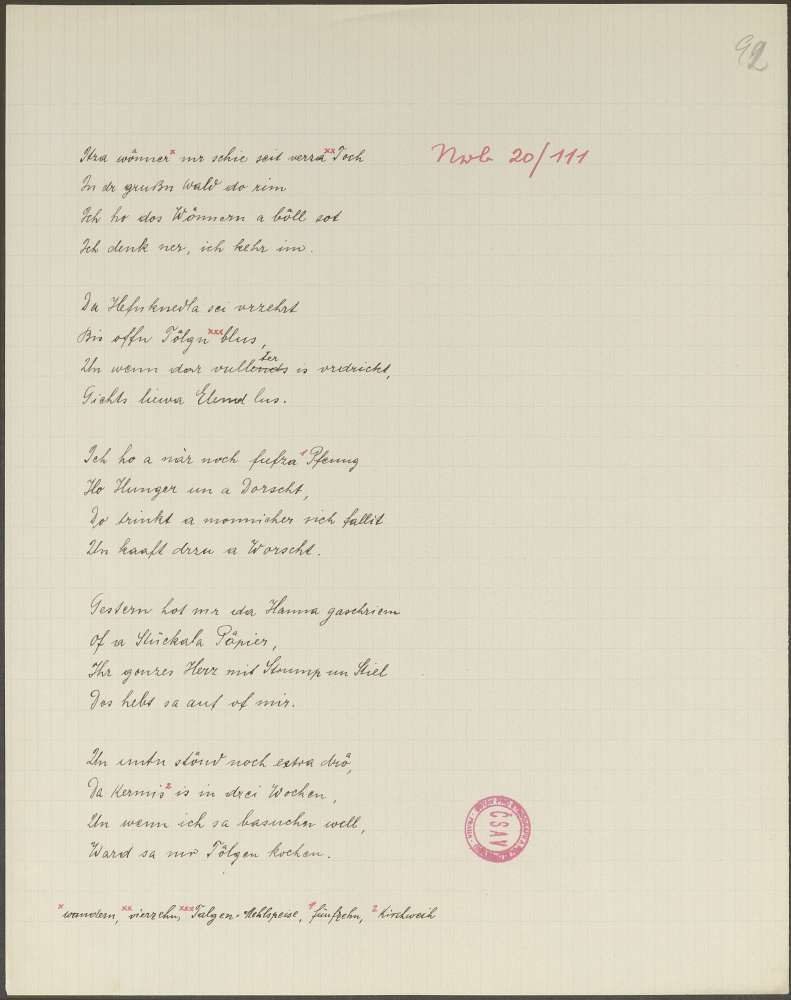 92
Itza wönner x mr schie seit verza xx Toch
Nwb 20/111
In dr grußn Wald do rim
Ich ho dos Wönnern a böll sot
Ich denk ner, ich kehr im.
Da Hefnknedla sei vrzehrt
Bis offn Tölgn xxx blus,
Un wenn dar vullends ter is vrdrickt,
Gichts liewa Elend lus.
Ich ho a när noch fufza 1 Pfenng
Ho Hunger un a Dorscht,
Do trinkt a monnicher sich sallit
Un kaaft drzu a Worscht.
Gestern hot mr da Hanna gaschriem
Of a Stückala Päpier,
Ihr gonzes Herz mit Stump un Stiel
Dos hebt sa auf of mir.
Un untn stönd noch extra drö,
Da Kermis 2 is in drei Wochen,
Un wenn ich sa basuchn well,
Ward sa mir Tölgen kochen.
ČSAV
x wandern, xx vierzehn, xxx Talgen - Mehlspeise, 1 fünfzehn, 2 Kirchweih